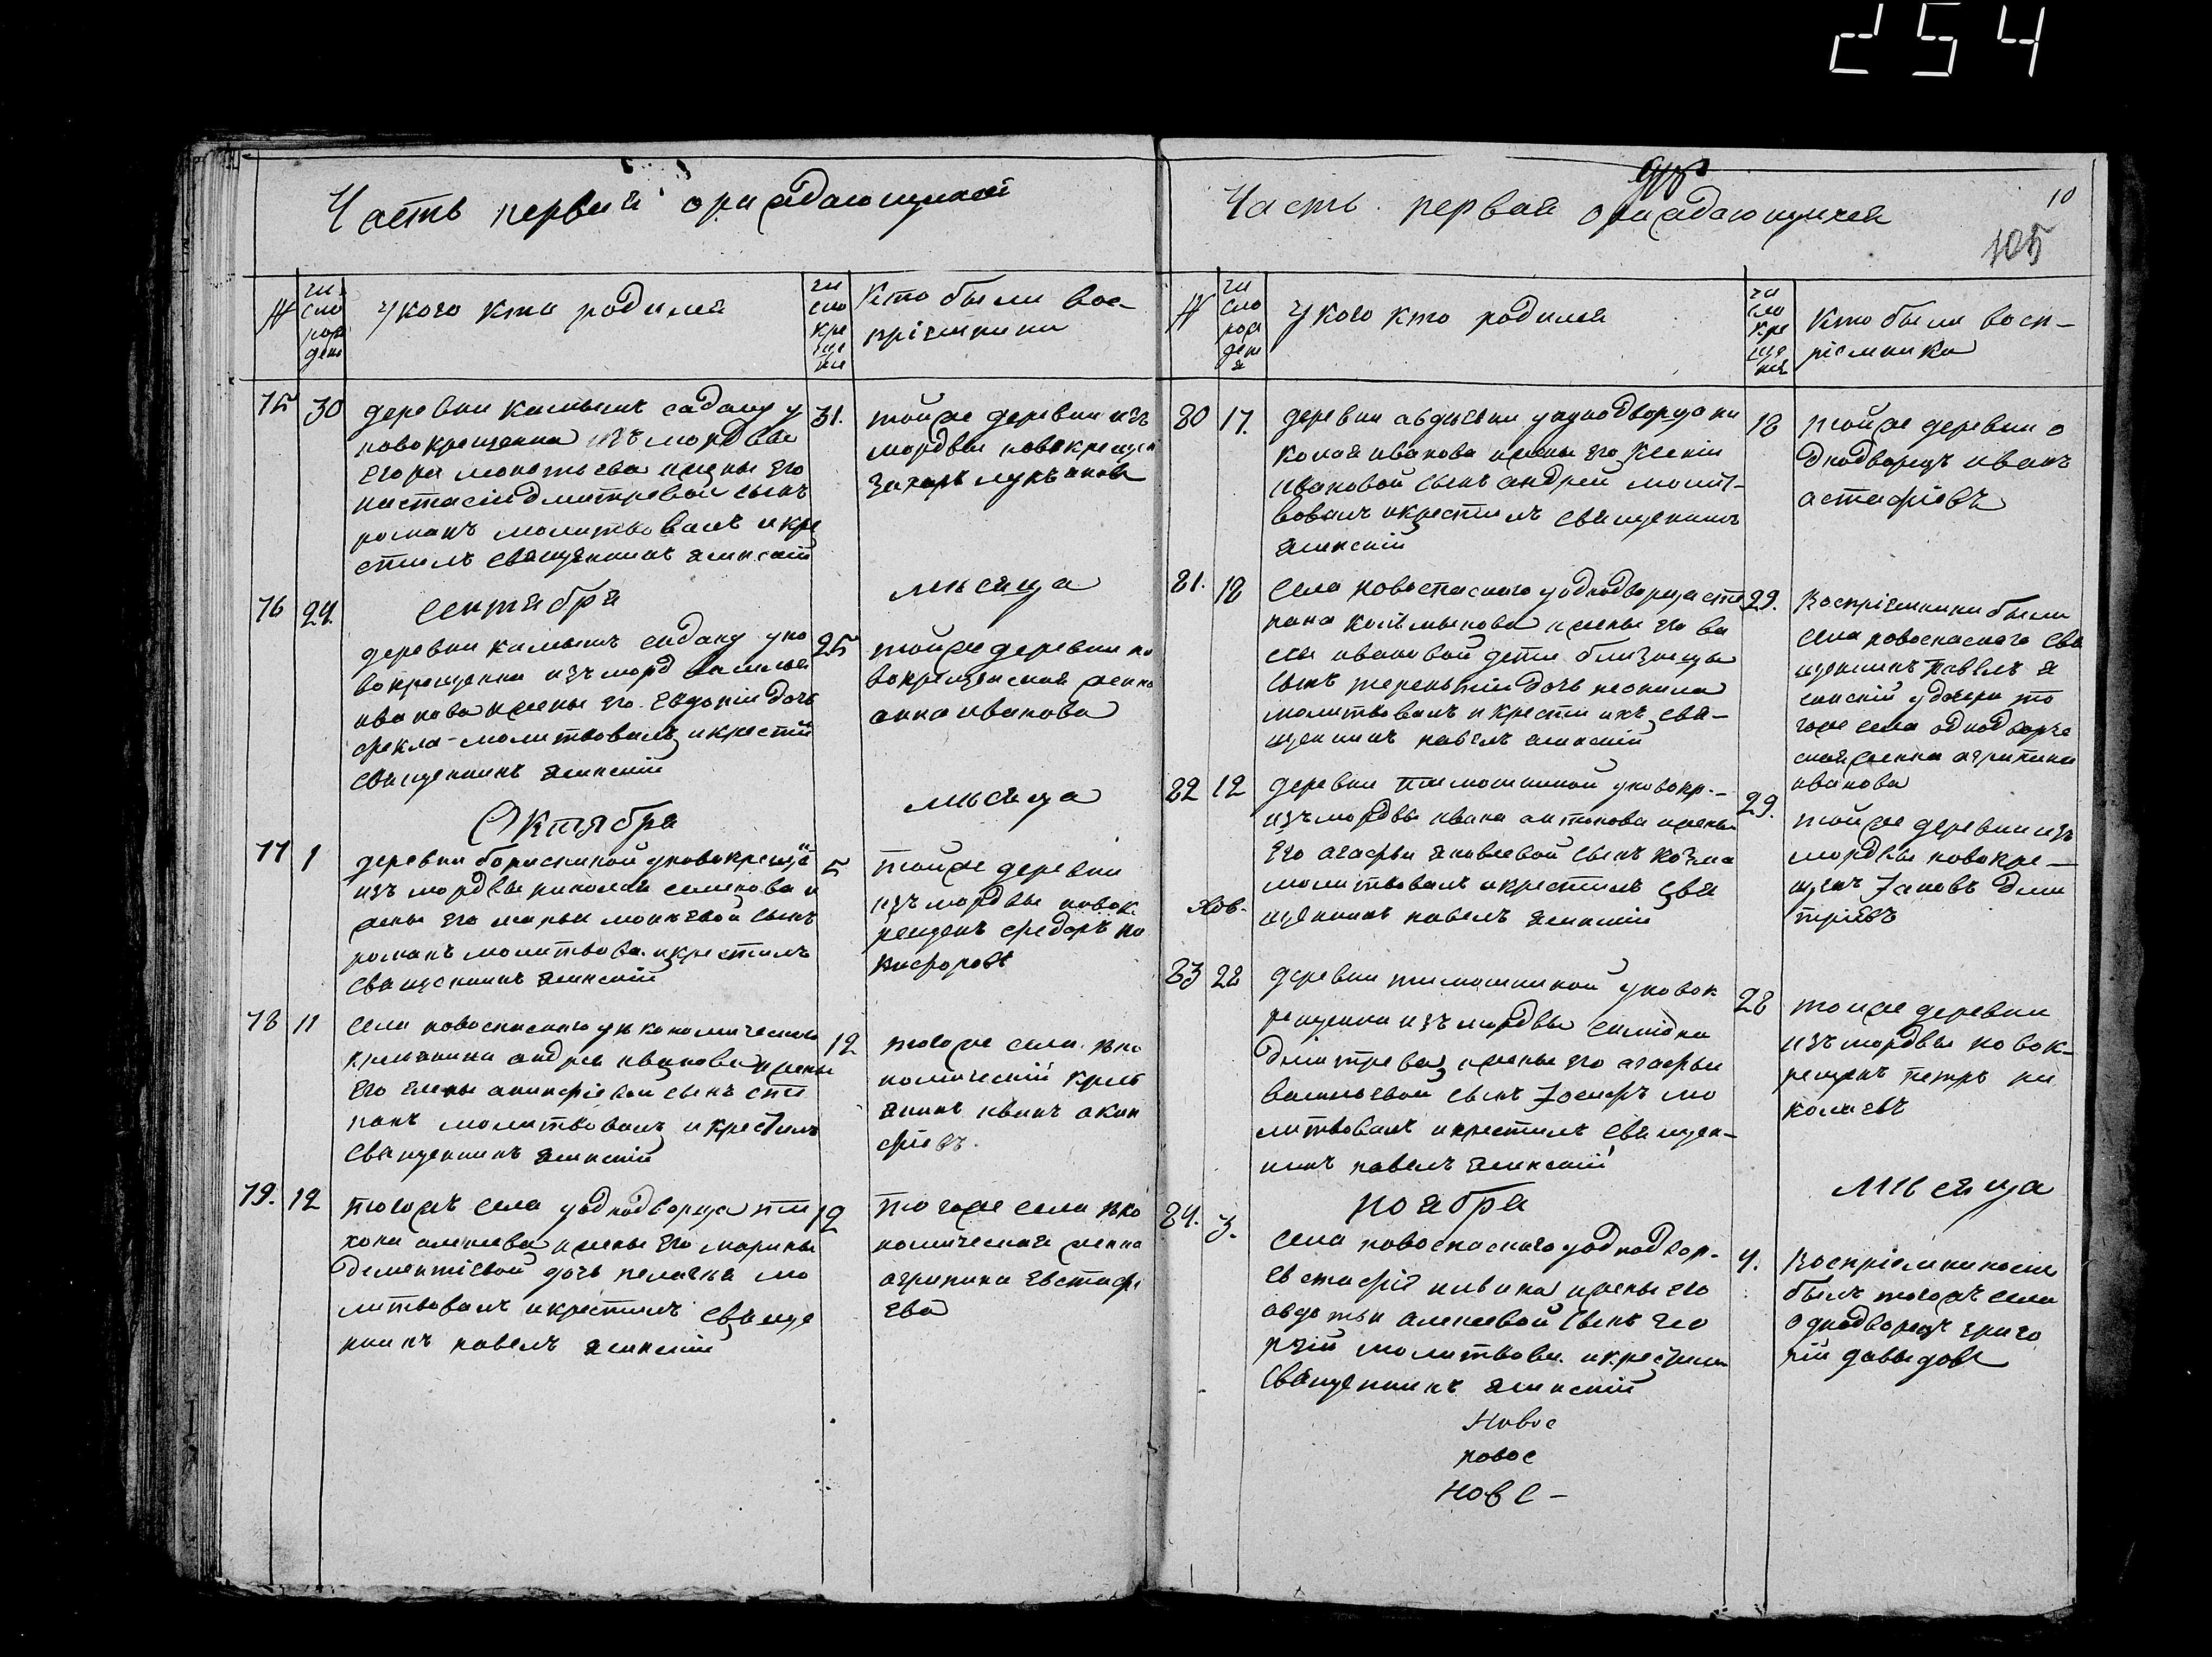 254
Часть первая о раждающихся
№
чи
сло
рож
дені
У кого кто родился
чи
сло
кре
ще
ние
Кто были вос-
пріемники
75 30
деревни камышъ садаку у
новокрещенна изъ мордвы
Егора и жены его
настасіи дмитревой сынъ
романъ молитвовалъ и кре
стилъ священникъ ясинскій
31.
той же деревни изъ
мордвы новокрещен
Захаръ лукъяновъ
Сентября
мѣсяца
76 24.
деревни камышъ садаку уно
вокрещенна изъ морд василья
иванова и жены его Евдокіи дочь
фекла молитвовалъ и крестилъ
священникъ ясинскій
25
той же деревни но
вокрещенская женка
анна иванова
Октября
мѣсяца
77 1
деревни борискиной уновокреще
изъ мордвы николая семенова и
жены его марьи сынъ
романъ молитвова. и крестилъ
священникъ ясинскій
5
той же деревни
изъ мордвы новок
рещенъ федоръ ни
кифоровъ
78 11
села новоспаского уэкономическаго
крестьянина андрея иванова и жены
его елены акинфіевой сынъ сте
панъ молитвовалъ и крестилъ
священникъ ясинскій
12
того же села эко
номической крест
янинъ иванъ акин
фіевъ.
79. 12
тогожъ села уоднодворца ти
хона алексеева и жены его марины
дементіевой дочь пелагея мо
литвовалъ и крестилъ свяще
нникъ павелъ ясинскій
12
того же села эко
номическая женка
агрипина евстафі
ева
Часть первая о раждающихся
10
105
№
чи
сло
рож
дени
я
У кого кто родился
чи
сло
кре
ще
ния
Кто были восп-
ріемники
80 17.
деревни авдѣевки уоднодворца ни
колая иванова и жены его Ксеніи
ивановой сынъ андрей молит-
вовалъ и крестилъ священникъ
ясинскій
18
той же деревни о
днодворецъ иванъ
астафіевъ
81. 18
Села новоспаского уоднодворца сте
пана и жены его ва
сы ивановой дети близнецы
сынъ терентій дочь неонила
молитвовалъ и крести ихъ свя-
щенникъ павелъ ясинскій
29.
Воспріемники были
села новоспаского свя
щенникъ павелъ я
синскій у дочери то
гоже села однодворче
ская женка агрипина
иванова
82 12
деревни тимошкиной уновокр.-
изъ мордвы ивана антонова и жены
его агафьи яковлевой сынъ козма
молитвовалъ и крестилъ свя
щенникъ павелъ ясинскій
29.
той же деревни изъ
мордвы новокре-
щенъ Iаковъ дми
тріевъ
83 22
деревни тимошкиной уновок
рещенна изъ мордвы
дмитрева и жены его агафьи
васильевой сынъ Iосифъ мо
литвовалъ и крестилъ священ-
никъ павелъ ясинскій
28
той же деревни
изъ мордвы новок-
рещенъ петръ ни
колаевъ
ноября
мѣсяца
84. 3.
Села новоспаского уоднодвор.
евстафія и жены его
авдотьи алексеевой сынъ гео
ргій молитвова. и крестилъ
священникъ ясинскій
4.
Воспріемникомъ
былъ тогожъ села
однодворецъ григо
рій давыдовъ
Новос
новос
Нов С -